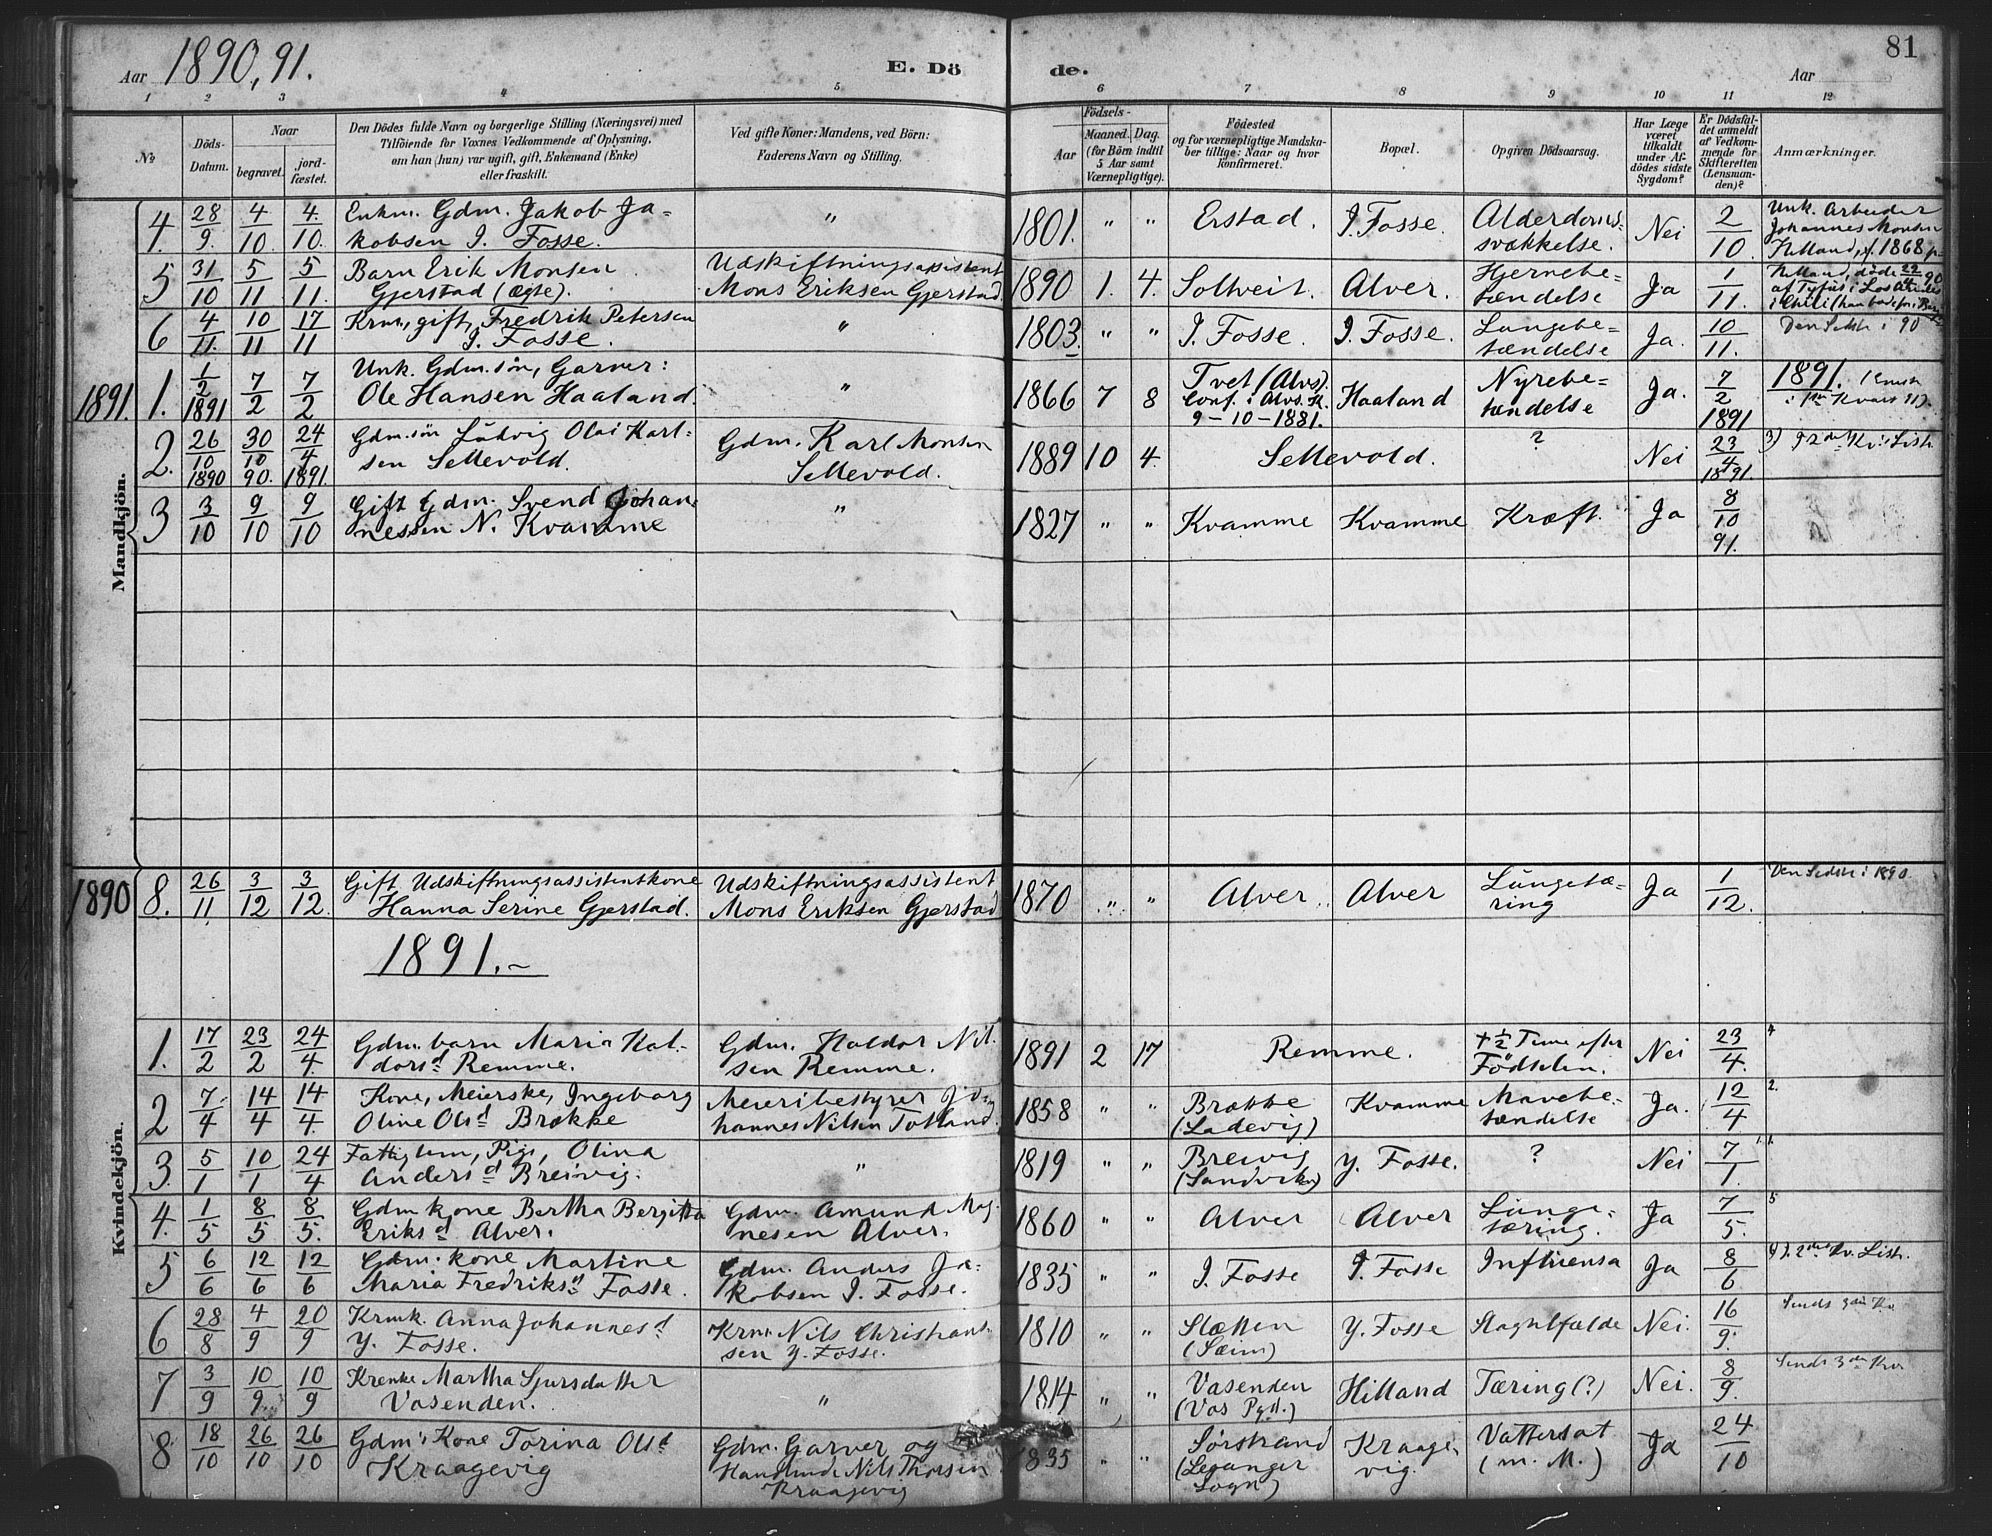 Aar 1890,91.
E. Dö
de.
81
Aar
1 2 3 4 5 6 7 8 9 10 11 12
№
Döds-
Datum.
Naar
begravet.
jord-
fæstet.
Den Dödes fulde Navn og borgerlige Stilling (Næringsvei) med
Tilföiende for Voxnes Vedkommende af Oplysning,
om han (hun) var ugift, gift, Enkemand (Enke)
eller fraskilt.
Ved gifte Koner: Mandens, ved Börn:
Faderens Navn og Stilling.
Födsels-
Aar
Maaned. Dag.
(for Börn indtil
5 Aar samt
Værnepligtige).
Födested
og for værnepligtige Mandska-
ber tillige: Naar og hvor
konfirmeret.
Bopæl.
Opgiven Dödsaarsag.
Har Læge
været
tilkaldt
under Af-
dödes sidste
Sygdom?
Er Dödsfal-
det anmeldt
af Vedkom-
mende for
Skifteretten
(Lensman-
den)?
Anmærkninger.
Mandkjön.
4. 28/9. 4/10 4./10. Enkm. Gdm. Jakob Ja-
kobsen I. Fosse. " 1801. " " Erstad. I. Fosse. Alderdoms-
svækkelse. Nei 2/10
Unk. Arbeider
Johannes Monsen
Hilland, f. 1868 p
5 31/10 5/11 5/11. Barn Erik Monsen
Gjerstad (Ægte). Udskiftningsassistent
Mons Eriksen Gjerstad 1890 1. 4. Soltveit. Alver. Hjernebe-
tændelse Ja 1/11.
Hilland, döde 22/4 90
af Tyfus i Los Andes
i Chili
6 4/11. 10/11 17/11 Krm., gift, Fredrik Petersen
I. Fosse. " 1803. " " I. Fosse. I. Fosse. Lungebe-
tændelse Ja. 10/11.
Den Sidste i 90
1891. 1. 1/2 1891 7/2 7/2 Unk. Gdm.søn, Garver:
Ole Hansen Haaland " 1866 7 8 Tvet (Alvs).
Conf. i Alvs. K.
9-10-1881. Haaland Nyrebe-
tændelse Ja. 7/2 1891
1891.
2. 26/10 1890 30/10 90. 24/4 1891. Gdm.søn Ludvig Olai Karl-
sen Sellevold. Gdm. Karl Monsen
Sellevold. 1889 10 4. Sellevold. ? Nei 23/4 1891.
3) 2de Kv. List
3 3/10 9/10 9/10 Gift Gdm. Svend Johan-
nessen N. Kvamme " 1827 " " Kvamme Kvamme Kræft. Ja 8/10 91.
Kvindekjön.
1890 8. 26/11 3/12 3/12. Gift Udskiftningsassistentkone
Hanna Serine Gjerstad. Udskiftningsassistent
Mons Eriksen Gjerstad 1870 " " Alver. Alver Lungetæ-
ring Ja 1/12.
Den Sidste i 1890
1891.-
1. 17/2 23/2 24/4. Gdm.barn Maria Hal-
dorsd Remme. Gdm. Haldor Nil-
sen Remme. 1891 2 17 Remme. + 1/2 Time efter
Födselen. Nei 23/4. 4
2 7/4 14/4 14/4. Kone, Meierske, Ingeborg
Oline Olsd Brække Meieribestyrer Jo-
hannes Nilsen Totland. 1858 " " Brække
(Ladevig) Kvamme Mavebe-
tændelse Ja. 12/4 2.
3. 5/1 10/1 24/4 Fattiglem, Pige, Olina
Andersd Breivig. " 1819 " " Breivig
(Sandviken) Y. Fosse. ? Nei 7/1. 1.
4. 1/5 8/5 8/5. Gdm kone Bertha Bergitta
Eriksd Alver. Gdm. Amund Mag-
nesen Alver. 1860 " " Alver Alver Lunge-
tæring. Ja 7/5. 5
5 6/6 12/6 12/6 Gdm. kone Martine
Maria Fredriksd Fosse. Gdm. Anders Ja-
kobsen I. Fosse. 1835 " " I. Fosse I. Fosse Influensa Ja 8/6 2den Kv. List.
6 28/8 4/9 20/9 Krmk. Anna Johannesd
Y. Fosse. Krm. Nils Christian-
sen Y. Fosse. 1810 " " Sletten
(Seim) Y. Fosse Slagtilfælde Nei. 16/9. Sends 3die Kv
7 3/9 10/9 10/9 Krenke Martha Sjursdatter
Vasenden. " 1814 " " Vasenden
(Vos Pgd.) Hilland Tæring (?) Nei. 8/9. Sends 3die Kv
8 18/10 26/10 26/10 Gdm's Kone Torina Olsd
Kraagevig Gdm. Garver og
Handlende Nils Thorsen
Kraagevig 1835 " " Sørstrand
(Leganger
Sogn) Kraage-
vig. Vattersot
(m. M.) Ja 24/10